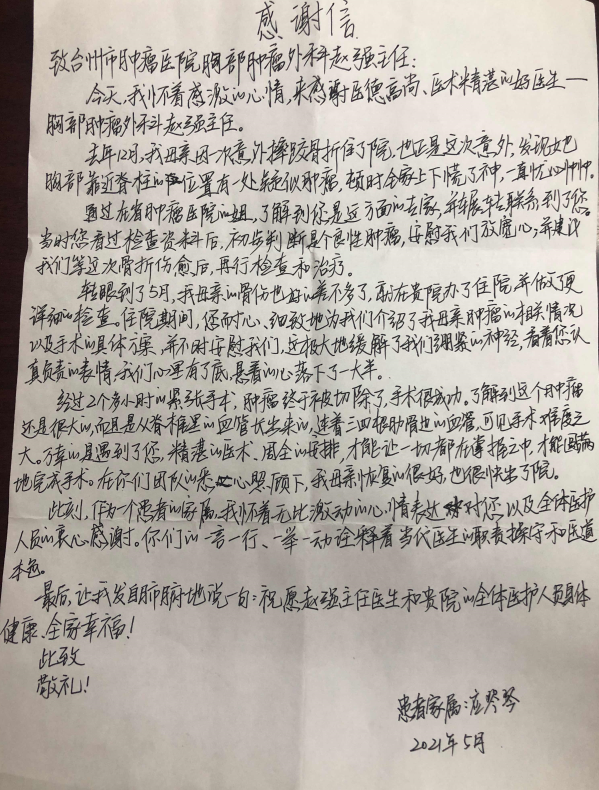 感谢信
致台州市肿瘤医院胸部肿瘤外科赵强主任:
今天,我怀着感激的心情,来感谢医德高尚、医术精湛的好医生一
胸部肿瘤外科赵强主任。
去年12月,我母亲因一次意外摔跤骨折住了院,也正是这次意外,发现她
胸部靠近脊柱的位置有一处疑似肿瘤,顿时全家上下慌了神,一直忧心忡忡。
通过在省肿瘤医院的姐,了解到您是这方面的专家,并辗转联系到了您。
当时您看过检查资料后,初步判断是个良性肿瘤,安慰我们放宽心,并建议
我们等这次骨折伤愈后,再行检查和治疗。
转眼到了5月,我母亲的骨伤也好的差不多了,就在贵院办了住院,并做了更
详细的检查。住院期间,您耐心、细致地为我们介绍了我母亲肿瘤的相关情况
以及手术的具体方案,并不时安慰我们,这极大地缓解了我们绷紧的神经,看着您认
真负责的表情,我们心里有了底,悬着的心落下了一大半。
经过2个多小时的紧张手术,肿瘤终于被切除了,手术很成功。了解到这个肿瘤
还是很大的,而且是从脊椎里的血管长出来的,连着三四根肋骨边的血管,可见手术难度之
大。万幸的是遇到了您,精湛的医术、周全的安排,才能让一切都在掌握之中,才能圆满
地完成手术。在你们团队的悉心照顾下,我母亲恢复的很好,也很快出了院。
此刻,作为一个患者的家属,我怀着无比激动的心情表达对您以及全体医护
人员的衷心感谢。你们的一言一行、一举一动诠释着当代医生的职责操守和医道
本色。
最后,让我发自肺腑地说一句:祝愿赵强主任医生和贵院的全体医护人员身体
健康、全家幸福!
此致
敬礼!
患者家属:应琴琴
2021年5月